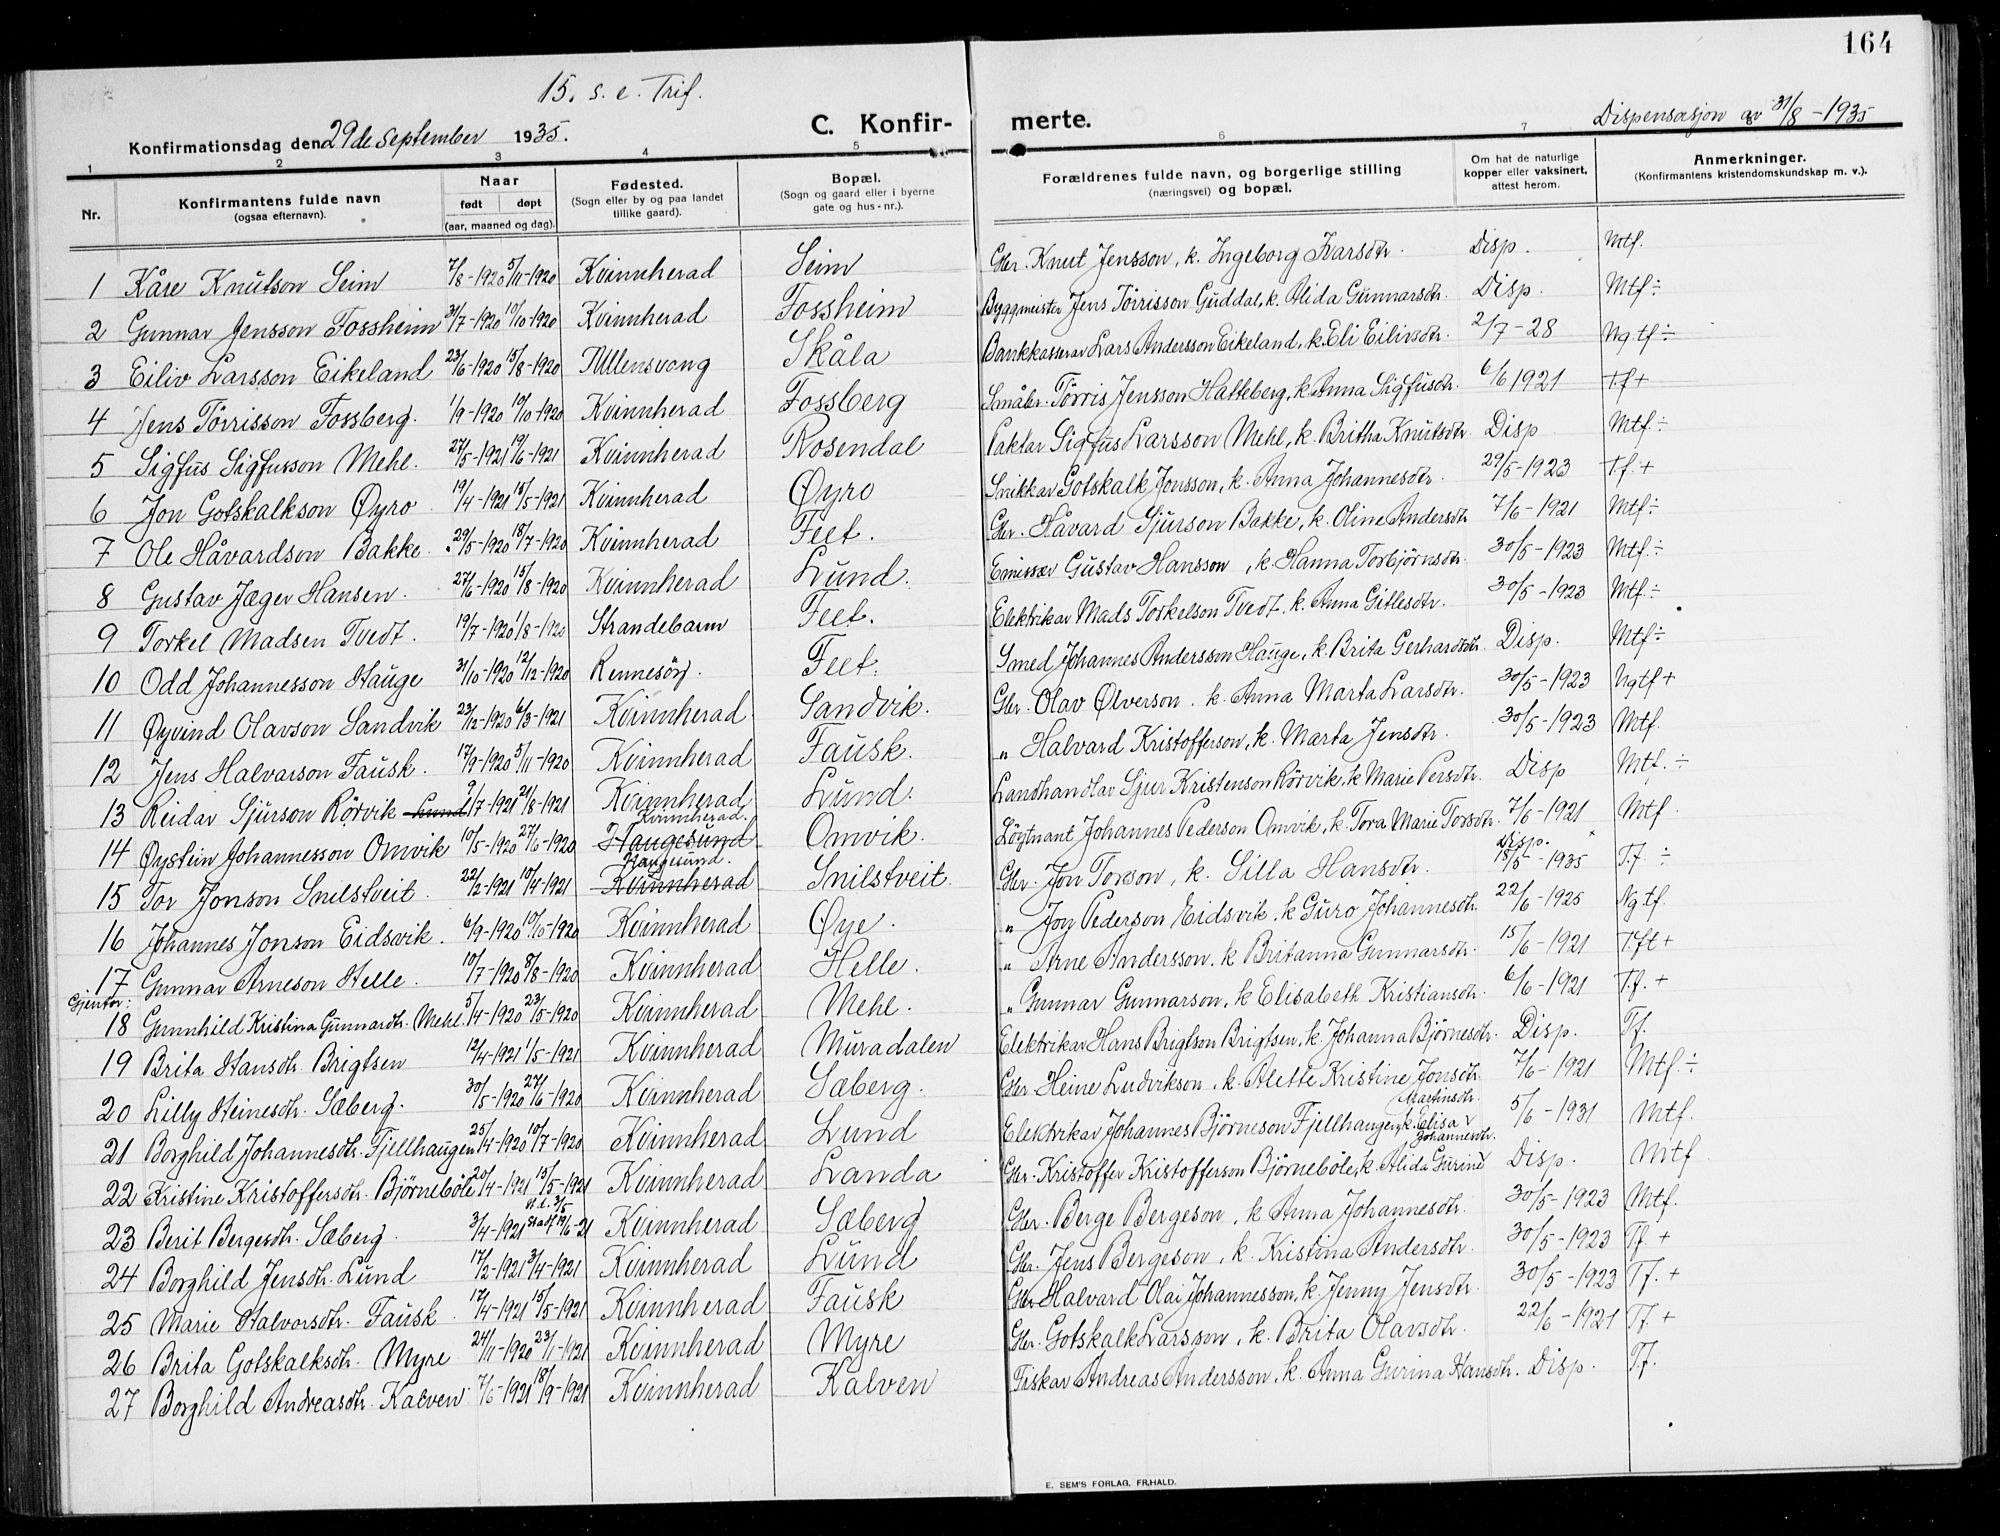 164
15. s. e. Trif.
Konfirmationsdag den 29de september 1935.
C. Konfir-
merte.
Dispensasjon av 31/8-1935
1 2 3 4 5 6 7
Nr.
Konfirmantens fulde navn
(ogsaa efternavn).
Naar
født døpt
(aar, maaned og dag).
Fødested.
(Sogn eller by og paa landet
tillike gaard).
Bopæl.
(Sogn og gaard eller i byerne
gate og hus-nr.).
Forældrenes fulde navn, og borgerlige stilling
(næringsvei) og bopæl.
Om hat de naturlige
kopper eller vaksinert,
attest herom.
Anmerkninger.
(Konfirmantens kristendomskundskap m. v.).
1 Kåre Knutson Seim 7/8-1920 5/11-1920 Kvinnherad Seim Gbr. Knut Jensson, k. Ingeborg Ivarsdtr. Disp. Mtf.
2 Gunnar Jensson Fossheim 31/7-1920 10/10-1920 Kvinnherad Fossheim Byggmeister Jens Tørrisson Guddal, k. Alida Gunnarsdtr. Disp. Mtf÷
3 Eiliv Larsson Eikeland 23/6-1920 15/8-1920 Ullensvang Skåla Bankkasserar Lars Andersson Eikeland, k. Eli Eilivsdtr. 2/7-28 Ngtf÷
4 Jens Tørrisson Fossberg. 1/9-1920 10/10-1920 Kvinnherad Fossberg Småbr. Tørris Jensson Hatteberg, k. Anna Sigfusdtr. 6/6 1921 Tf+
5 Sigfus Sigfusson Mehl. 27/5-1921 19/6-1921 Kvinnherad Rosendal Paktar Sigfus Larsson Mehl, k. Britha Knutsdtr. Disp Mtf÷
6 Jon Gotskalkson Øyro 19/4-1921 15/5-1921 Kvinnherad Øyro Snikkar Gotskalk Jonsson, k. Anna Johannesdtr. 29/5-1923 Tf+
7 Ole Håvardson Bakke. 29/5-1920 18/7-1920 Kvinnherad Feet. Gbr. Håvard Sjurson Bakke, k. Oline Andersdtr 7/6-1921 Mtf÷
8 Gustav Jæger Hansen. 27/6-1920 15/8-1920 Kvinnherad Lund. Emissær Gustav Hansson, k. Hanna Torbjørnsdtr. 30/5-1923 Mtf÷
9 Torkel Madsen Tvedt. 19/7-1920 1/8-1920 Strandebarm Feet. Elektrikar Mads Torkelson Tvedt, k. Anna Gitlesdtr. 30/5-1923 Mtf÷
10 Odd Johannesson Hauge 31/10-1920 12/12-1920 Rennesöy. Feet. Smed Johannes Andersson Hauge, k. Brita Gerhardsdtr. Disp. Mtf÷
11 Øyvind Olavson Sandvik 23/12-1920 6/3-1921 Kvinnherad Sandvik. Gbr. Olav Ølverson. k. Anna Marta Larsdtr. 30/5-1923 Ngtf+
12 Jens Halvarson Fausk. 17/9-1920 5/11-1920 Kvinnherad Fausk. " Halvard Kristofferson, k. Marta Jensdtr. 30/5-1923 Mtf.
13 Reidar Sjurson Rörvik Lund 9/7-1921 21/8-1921 Kvinnherad Lund. Landhandlar Sjur Kristenson Rörvik, k. Marie Persdtr. Disp Mtf.÷
Kvinnherad.
14 Øystein Johannesson Omvik 10/5-1920 27/6-1920 Haugesund Omvik. Løytnant Johannes Pederson Omvik, k. Tora Marie Torsdtr. 7/6-1921 Mtf.
Haugesund. Disp.
15 Tor Jonson Snilstveit. 22/2-1921 10/4-1921 Kvinnherad Snilstveit. Gbr. Jon Torson, k. Silla Hansdtr. 15/5-1935 T.f ÷
16 Johannes Jonson Eidsvik. 6/9-1920 10/10-1920 Kvinnherad Øye. " Jon Pederson Eidsvik. k Guro Johannesdtr. 22/6-1925 Ngtf.
17 Gunnar Arneson Helle. 10/7-1920 8/8-1920 Kvinnherad Helle. " Arne Andersson. k. Britanna Gunnarsdtr. 15/6-1921 Tft+
Gjentor:
18 Gunnhild Kristina Gunnardtr. Mehl. 5/4-1920 23/5-1920 Kvinnherad Mehl. " Gunnar Gunnarson, k Elisabeth Kristiansdtr. 6/6-1921 Tf. +
19 Brita Hansdtr. Brigtsen 12/4-1921 1/5-1921 Kvinnherad Muradalen Elektrikar Hans Brigtson Brigtsen, k. Johanna Bjørnesdtr. Disp. Tf.
20 Lilly Heinesdtr. Sæberg. 30/5-1920 27/6-1920 Kvinnherad Sæberg. Gbr. Heine Ludvikson, k. Alette Kristine Jonsdtr. 7/6-1921 Mtf÷
Martinsdtr.
21 Borghild Johannesdtr. Fjellhaugen 25/4-1920 10/7-1920 Kvinnherad Lund Elektrikar Johannes Björneson Fjellhaugen, k. Elisa 5/6-1931 Mtf.
Johannesdtr.
22 Kristine Kristoffersdtr. Björneböle 20/4-1921 15/5-1921 Kvinnherad Landa Gbr. Kristoffer Kristofferson Björneböle, k. Alida Gurine Disp. Mtf
H.d. 3/5
23 Berit Bergesdtr. Sæberg. 3/4-1921 Stadf 19/6-21 Kvinnherad Sæberg Gbr. Berge Bergeson, k. Anna Johannesdtr. 30/5-1923 Mtf.
24 Borghild Jensdtr. Lund 17/2-1921 3/4-1921 Kvinnherad Lund Gbr. Jens Bergeson, k. Kristina Andersdtr. 30/5-1923 Tf +
25 Marie Halvorsdtr. Fausk 12/4-1921 15/5-1921 Kvinnherad Fausk Gbr Halvard Olai Johannesson, k. Jenny Jensdtr. 30/5-1923 Tf. +
26 Brita Gotskalksdtr. Myre 24/11-1920 23/1-1921 Kvinnherad Myre Gbr. Gotskalk Larsson, k. Brita Olavsdtr. 22/6-1921 Tf. +
27 Borghild Andreasdtr. Kalven 7/6-1921 18/9-1921 Kvinnherad Kalven Fiskar Andreas Andersson, k. Anna Gurina Hansdtr. Disp. Tf.
E. SEM'S FORLAG, FR.HALD.